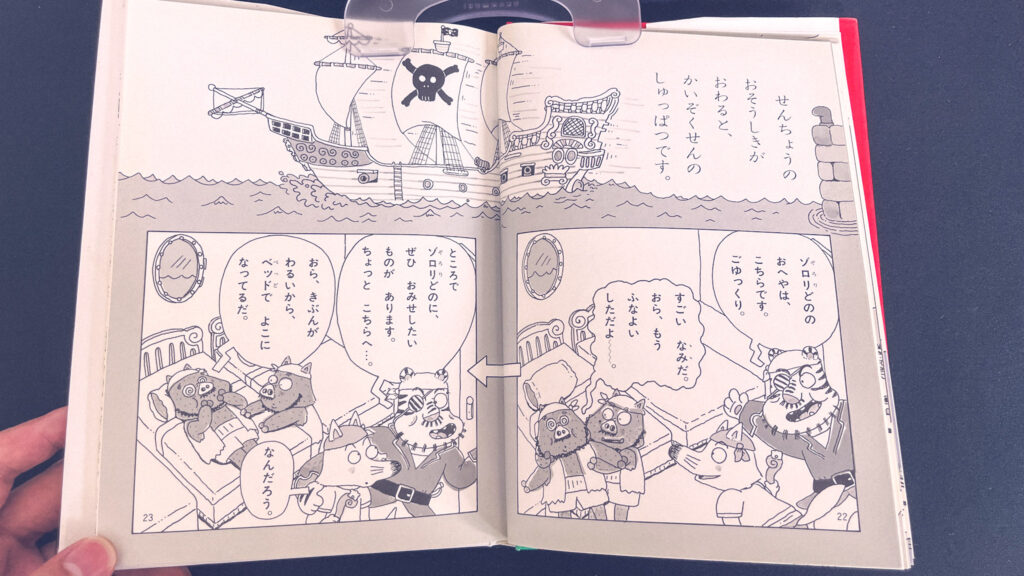 せんちょうの
おそうしきが
おわると、
かいぞくせんの
しゅっぱつです。
ゾロリどのの
おへやは、
こちらです。
ごゆっくり。
すごい なみだ。
おら、もう
ふなよい
しただよ……。
22
ところで
ゾロリどのに、
ぜひ おみせしたい
ものが あります。
ちょっと こちらへ…。
おら、きぶんが
わるいから、
ベッドで よこに
なってるだ。
なんだろう。
23